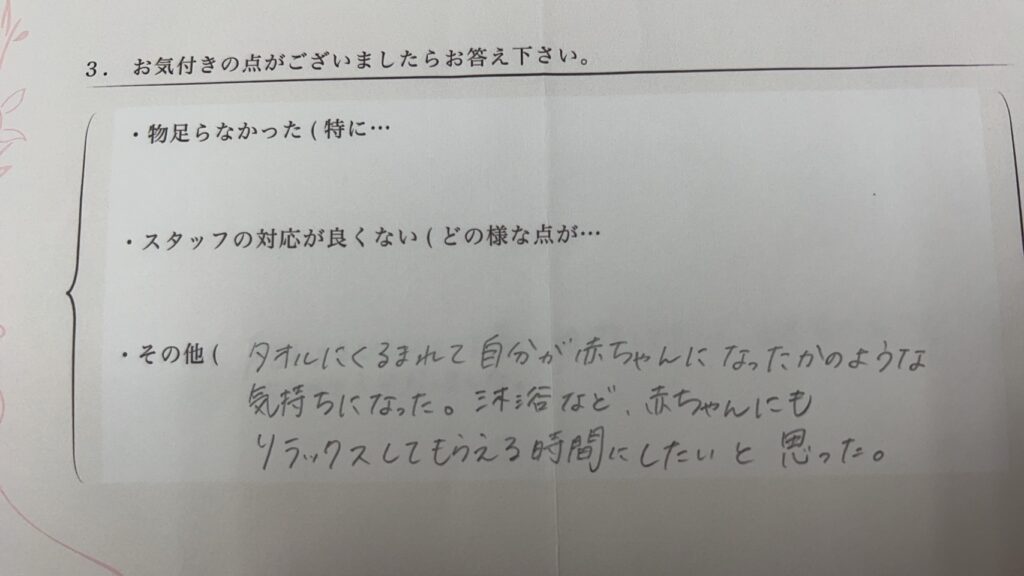 3. お気付きの点がございましたらお答え下さい。
・物足らなかった ( 特に…
・スタッフの対応が良くない ( どの様な点が…
・その他 ( タオルにくるまれて自分が赤ちゃんになったかのような
気持ちになった。沐浴など、赤ちゃんにも
リラックスしてもらえる時間にしたいと思った。